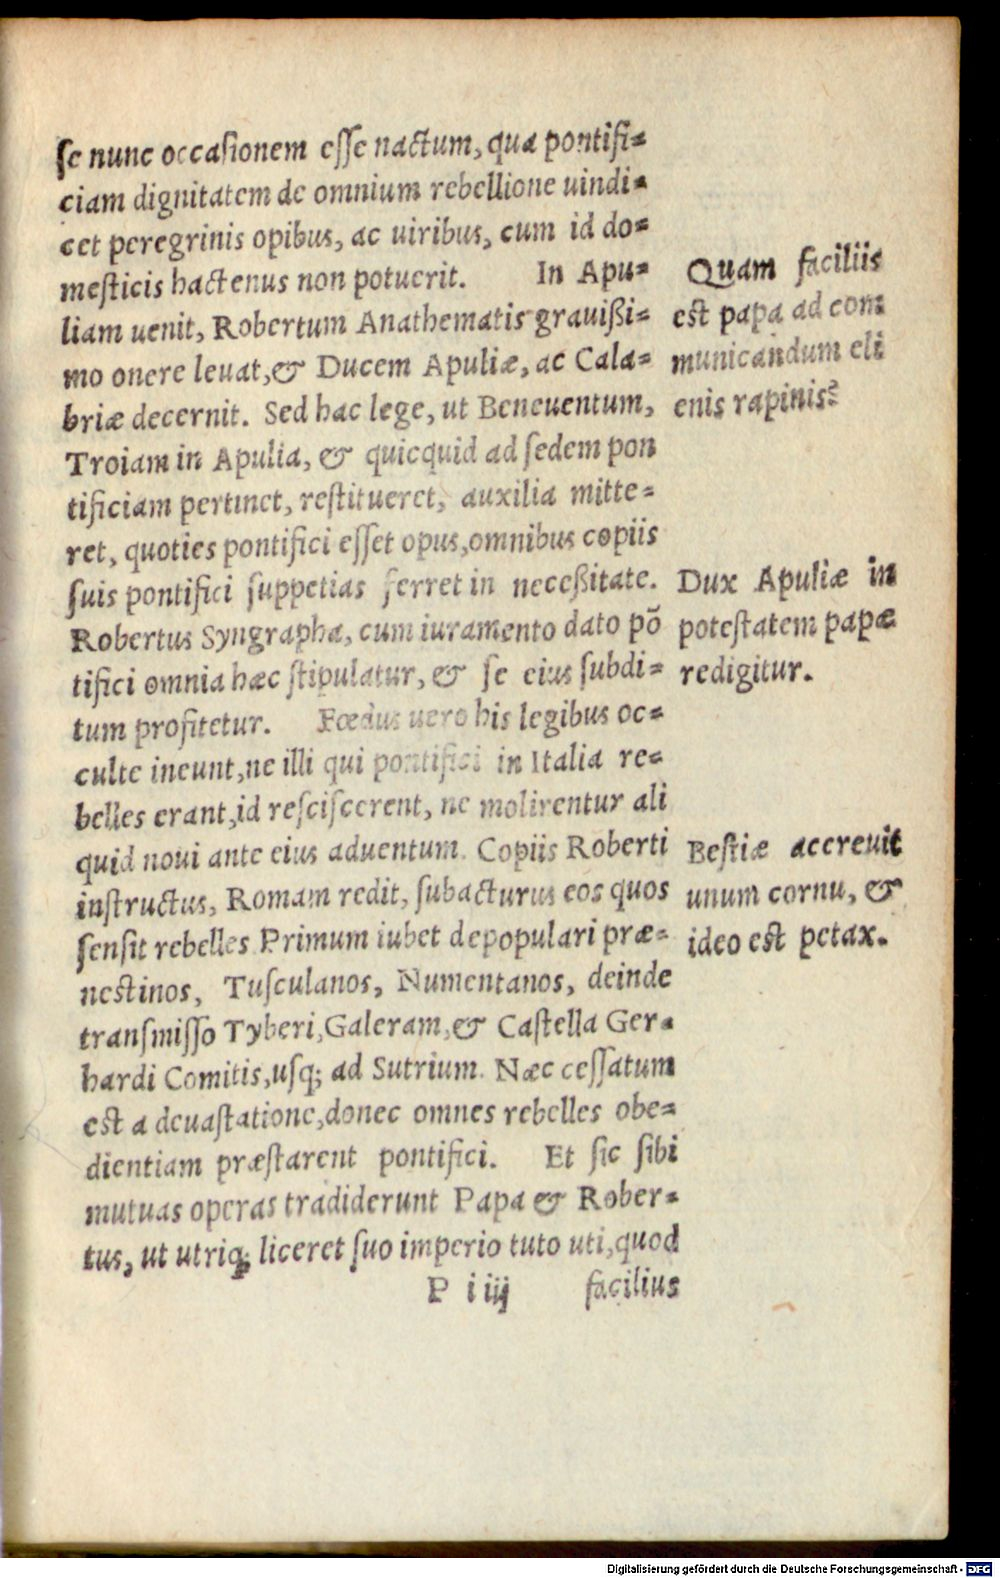 se nunc occasionem esse nactum, qua pontifi-
ciam dignitatem de omnium rebellione uindi-
cet peregrinis opibus, ac uiribus, cum id do-
mesticis hactenus non potuerit. In Apu-
liam uenit, Robertum Anathematis grauißi-
mo onere leuat, & Ducem Apuliæ, ac Cala-
briæ decernit. Sed hac lege, ut Beneuentum,
Troiam in Apulia, & quicquid ad sedem pon
tificiam pertinet, restitueret, auxilia mitte-
ret, quoties pontifici esset opus, omnibus copiis
suis pontifici suppetias ferret in neceßitate.
Robertus Syngrapha, cum iuramento dato põ
tifici omnia hæc stipulatur, & se eius subdi-
tum profitetur. Fœdus uero his legibus oc-
culte ineunt, ne illi qui pontifici in Italia re-
belles erant, id resciscerent, ne molirentur ali
quid noui ante eius aduentum. Copiis Roberti
instructus, Romam redit, subacturus eos quos
sensit rebelles. Primum iubet depopulari præ-
nestinos, Tusculanos, Numentanos, deinde
transmisso Tyberi, Galeram, & Castella Ger-
hardi Comitis, usq; ad Sutrium. Næc cessatum
est a deuastatione, donec omnes rebelles obe-
dientiam præstarent pontifici. Et sic sibi
mutuas operas tradiderunt Papa & Rober-
tus, ut utriq; liceret suo imperio tuto uti, quod
P iiij facilius
Quam faciliis
est papa ad com
municandum eli
enis rapinis?
Dux Apuliæ in
potestatem papæ
redigitur.
Bestiæ accreuit
unum cornu, &
ideo est petax.
Digitalisierung gefördert durch die Deutsche Forschungsgemeinschaft - DFG